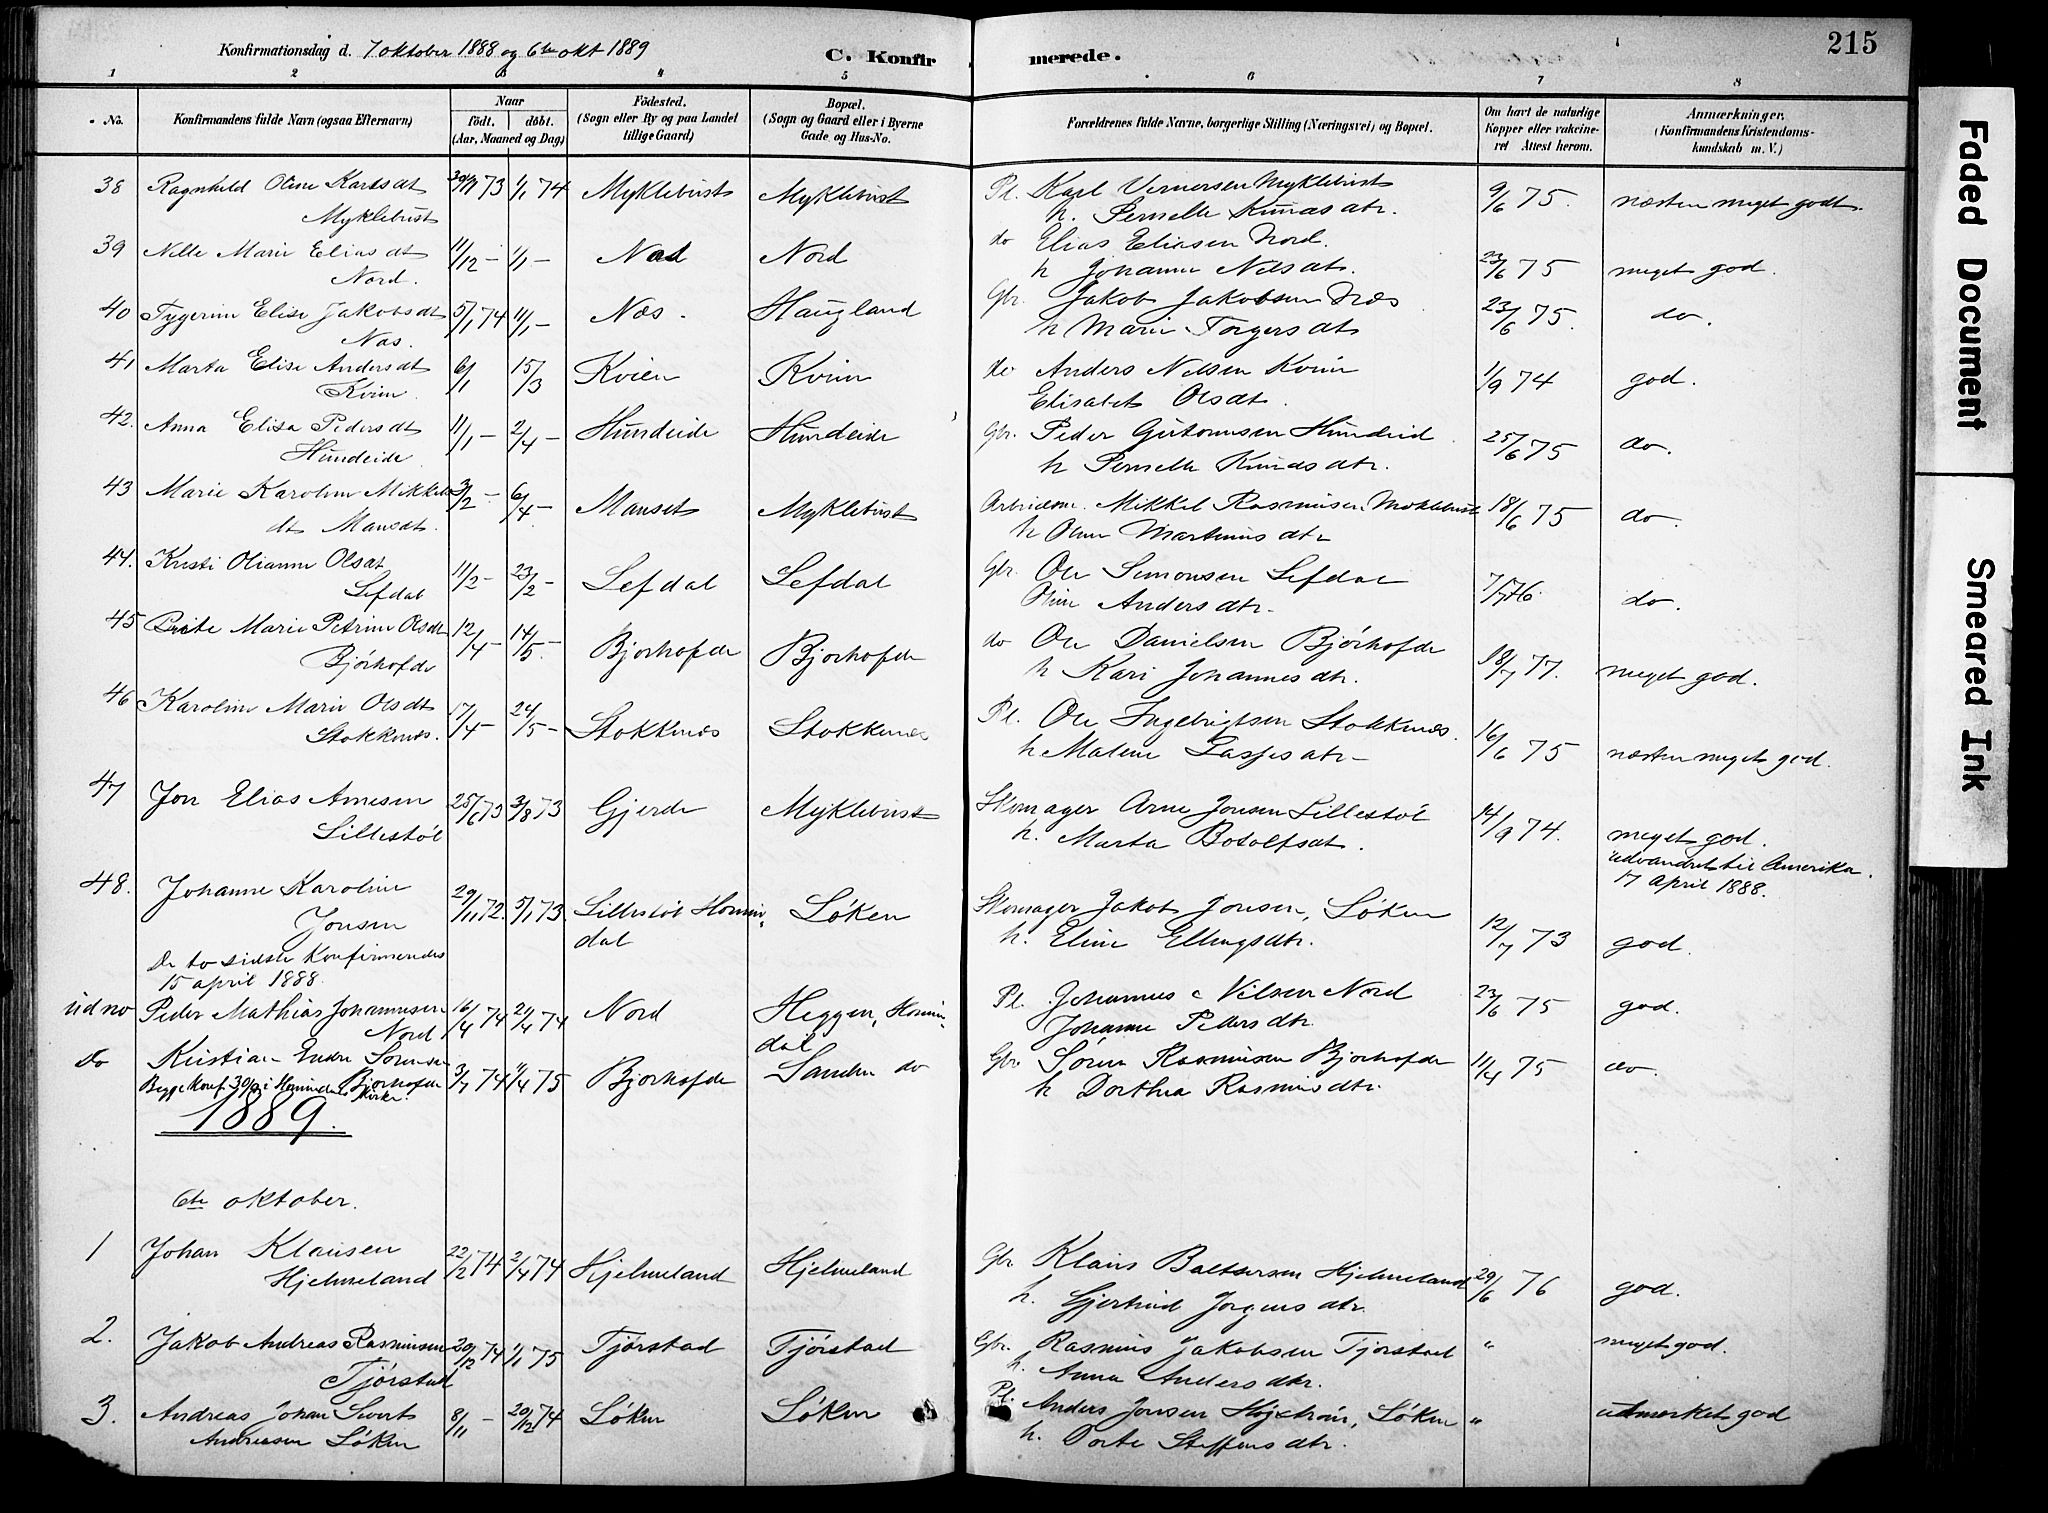 Konfirmationsdag d. 7 oktober 1888 og 6te okt 1889
C. Konfirmerede.
215
1 2 3 4 5 6 7 8
No.
Konfirmandens fulde Navn (ogsaa Efternavn)
Naar
født. døbt.
(Aar, Maaned og Dag)
Fødested.
(Sogn eller By og paa Landet
tillige Gaard)
Bopæl.
(Sogn og Gaard eller i Byerne
Gade og Hus-No.
Forældrenes fulde Navne, borgerlige Stilling (Næringsvei) og Bopæl.
Om havt de naturlige
Kopper eller vakcine-
ret Attest herom.
Anmærkninger,
(Konfirmandens Kristendoms-
kundskab m. V.)
38 Ragnhild Oline Karlsdt 73 1/1 74 Myklebust Myklebust Pl. Karl Vernersen Myklebust 9/6 75. næsten meget godt.
Myklebust h. Pernelle Knudsdtr.
39 Nille Marie Eliasdt 11/12 - 1/1 - Nord Nord do Elias Eliasen Nord. 23/6 75 meget god.
Nord. h Johanne Nilsdtr.
40 Elise Jakobsdt 5/1 74 11/1 - Næs. Haugland Gbr. Jakob Jakobsen Næs 23/6 75. do.
Næs. h Marie Torgersdt
41 Marta Elise Andersdt 6/1 15/3 Kvien Kviin do Anders Nilsen Kviin 1/9 74 god.
Kviin. Elisabet Olsdt.
42. Anna Elisa Pedersdt 11/1 - 2/4 - Hundeide Hundeide Gbr. Peder Hundeid 25/6 75 do.
Hundeide h Pernelle Knudsdtr.
43 Marie Karoline Mikkels 3/2 - 6/4 - Manset Myklebust Mikkel Rasmusen Myklebust 18/6 75 do.
dt Mansdt. h Oline Martinusdtr
44. Kristi Olianne Olsdt 11/2 - 23/2 - Lefdal Lefdal Gbr. Ole Simonsen Lefdal 7/7 76. do.
Lefdal Oline Andersdtr.
45 Marie Petrine Olsdt 12/4 - 14/5 - Bjørhofde Bjørhofde do Ole Danielsen Bjørhofde 18/7 77. meget god.
Bjørhofde h Kari Johannesdtr.
46 Karoline Marie Olsdt 17/4 - 24/5 - Stokknes Stokkenes Pl. Ole Ingebrigtsen Stokknes. 16/6 75 næsten meget god.
Stokkenes. h Malene Lassesdtr
47 Jon Elias Arnesen 25/6 73 3/8 73 Gjerde Myklebust Skomager Arne Jonsen Lillestøl 14/9 74. meget god.
Lillestøl h. Marta Botolfsdt. udvandret til Amerika.
17 april 1888.
48. Johanne Karoline 29/11 72. 5/1 73 Lillestøl Hornin- Løken Skomager Jakob Jonsen, Løken 12/7 73 god.
Jonsen dal h. Eline Ellingsdtr.
De to sidste Konfirmeredes
15 april 1888.
ud no Peder Mathias Johannesen 16/4 74 74 Nord Heggen, Hornin- Pl. Johannes Nilsen Nord 23/6 75 god.
Nord dal Johanne Pedersdtr.
Do Kristian Endre Sørensen 3/7 74 75 Bjørhofde do Gbr. Søren Rasmusen Bjørhofde 11/4 75 do.
Begge konf. 30/9 i Hornindals Bjørhofde h Dorthea Rasmusdtr.
Kirke.
1889.
6te oktober.
1 Johan Klausen 22/2 74 2/4 74 Hjelmeland Hjelmeland Gbr Klaus Baltsersen Hjelmeland 29/6 76 god.
Hjelmeland h. Gjertrud Jørgensdtr.
2. Jakob Andreas Rasmusen 20/12 74 1/1 75 Tjørstad Tjørstad Gbr. Rasmus Jakobsen Tjørstad " meget god.
Tjørstad h. Anna Andersdtr.
3. Andreas Johan Sivert 8/11 - 20/12 74 Løken Løken Pl. Anders Jonsen, Løken " udmerket god
Andreasen Løken h. Dorte Steffensdtr.
Faded Document
Smeared Ink